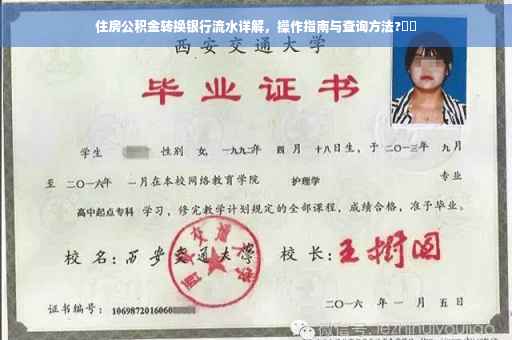 住房公积金转换银行流水详解，操作指南与查询方法?
西安交通大学
毕业证书
学生 性别 女，一九九二年 四月 十八日生，于二〇一三年 九月
至 二〇一六年 一月在本校网络教育学院 护理学 专业
高中起点专科 学习，修完教学计划规定的全部课程，成绩合格，准予毕业。
校 名：西安交通大学 校 长：王树国
西安交通大学
证书编号：1069872016060
二〇一六 年 一 月 五 日
微信号: jezhihuiyoujiao